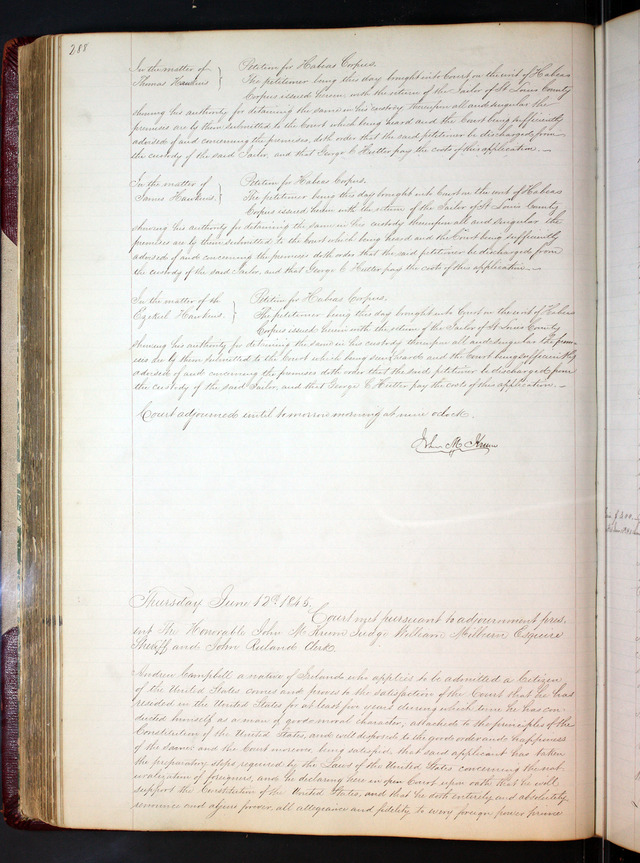 288
In the matter of } Petition for Habeas Corpus.
Thomas Hawkins } The petitioner being this day brought into Court on the writ of Habeas
Corpus issued herein with the return of the Jailor of St Louis County
shewing his authority for detaining the same in his custody thereupon all and singular the
premises are by them submitted to the Court which being heard and the Court being sufficiently
advised of and concerning the premises, doth order that the said petitioner be discharged from
the custody of the said Jailor, and that George C Hutter pay the costs of this application. —
In the matter of } Petition for Habeas Corpus.
James Hawkins. } The petitioner being this day brought into Court on the writ of Habeas
Corpus issued herein with the return of the Jailor of St Louis County
shewing his authority for detaining the same in his custody thereupon all and singular the
premises are by them submitted to the Court which being heard and the Court being sufficiently
advised of and concerning the premises doth order that the said petitioner be discharged from
the custody of the said Jailor, and that George C Hutter pay the costs of this application —
In the matter of } Petition for Habeas Corpus.
Ezekiel Hawkins. } The petitioner being this day brought into Court on the writ of Habeas
Corpus issued herein with the return of the Jailor of St Louis County
shewing his authority for detaining the same in his custody thereupon all and singular the prem-
ises are by them submitted to the Court which being heard and the Court being sufficiently
advised of and concerning the premises doth order that the said petitioner be discharged from
the custody of the said Jailor, and that George C Hutter pay the costs of this application. —
Court adjourned until tomorrow morning at nine oclock.
John M Krum
Thursday June 12th 1845.
Court met pursuant to adjournment pres-
ent The Honorable John M Krum Judge William Milburn Esquire
Sheriff and John Ruland Clerk
Andrew Campbill a native of Ireland who applies to be admitted a Citizen
of the United States comes and proves to the satisfaction of the Court that he has
resided in the United States for at least five years during which time he has con-
ducted himself as a man of good moral character, attached to the principles of the
Constitution of the United States, and well disposed to the good order and happiness
of the same; and the Court moreover being satisfied that said applicant has taken
the preparatory steps required by the Laws of the United States concerning the nat-
uralization of foreigners, and he declaring here in open Court upon oath that he will
support the Constitution of the United States, and that he doth entirely and absolutely
renounce and abjure forever, all allegiance and fidelity to every foreign power prince